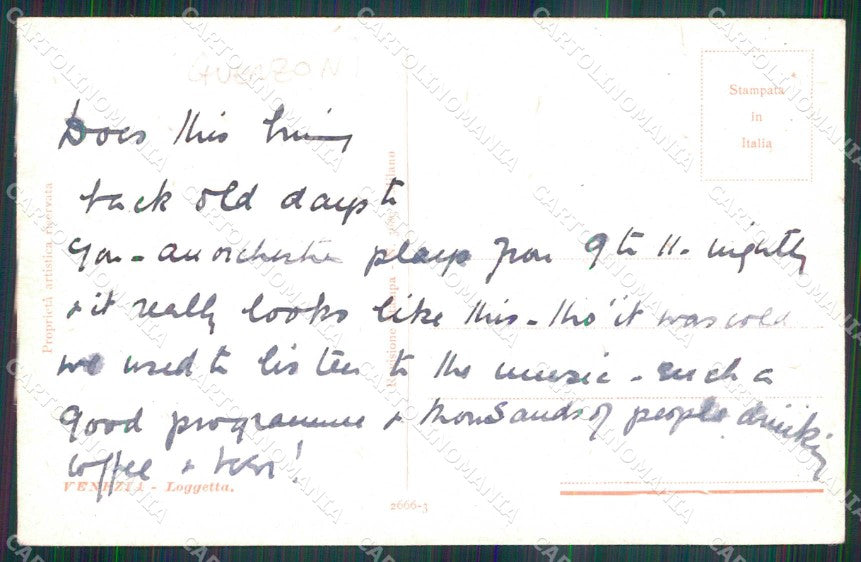 GUERZONI
Does this bring
back old days to
you - an orchestra plays from 9 to 11. nightly
& it really looks like this - tho' it was cold
we used to listen to the music - such a
good programme & thousands of people drinking
coffee &
VENEZIA - Loggetta.
2666-3
Stampata
in
Italia
Proprietà artistica riservata
Revisione Stampa - Milano
CARTOLINOMANIA